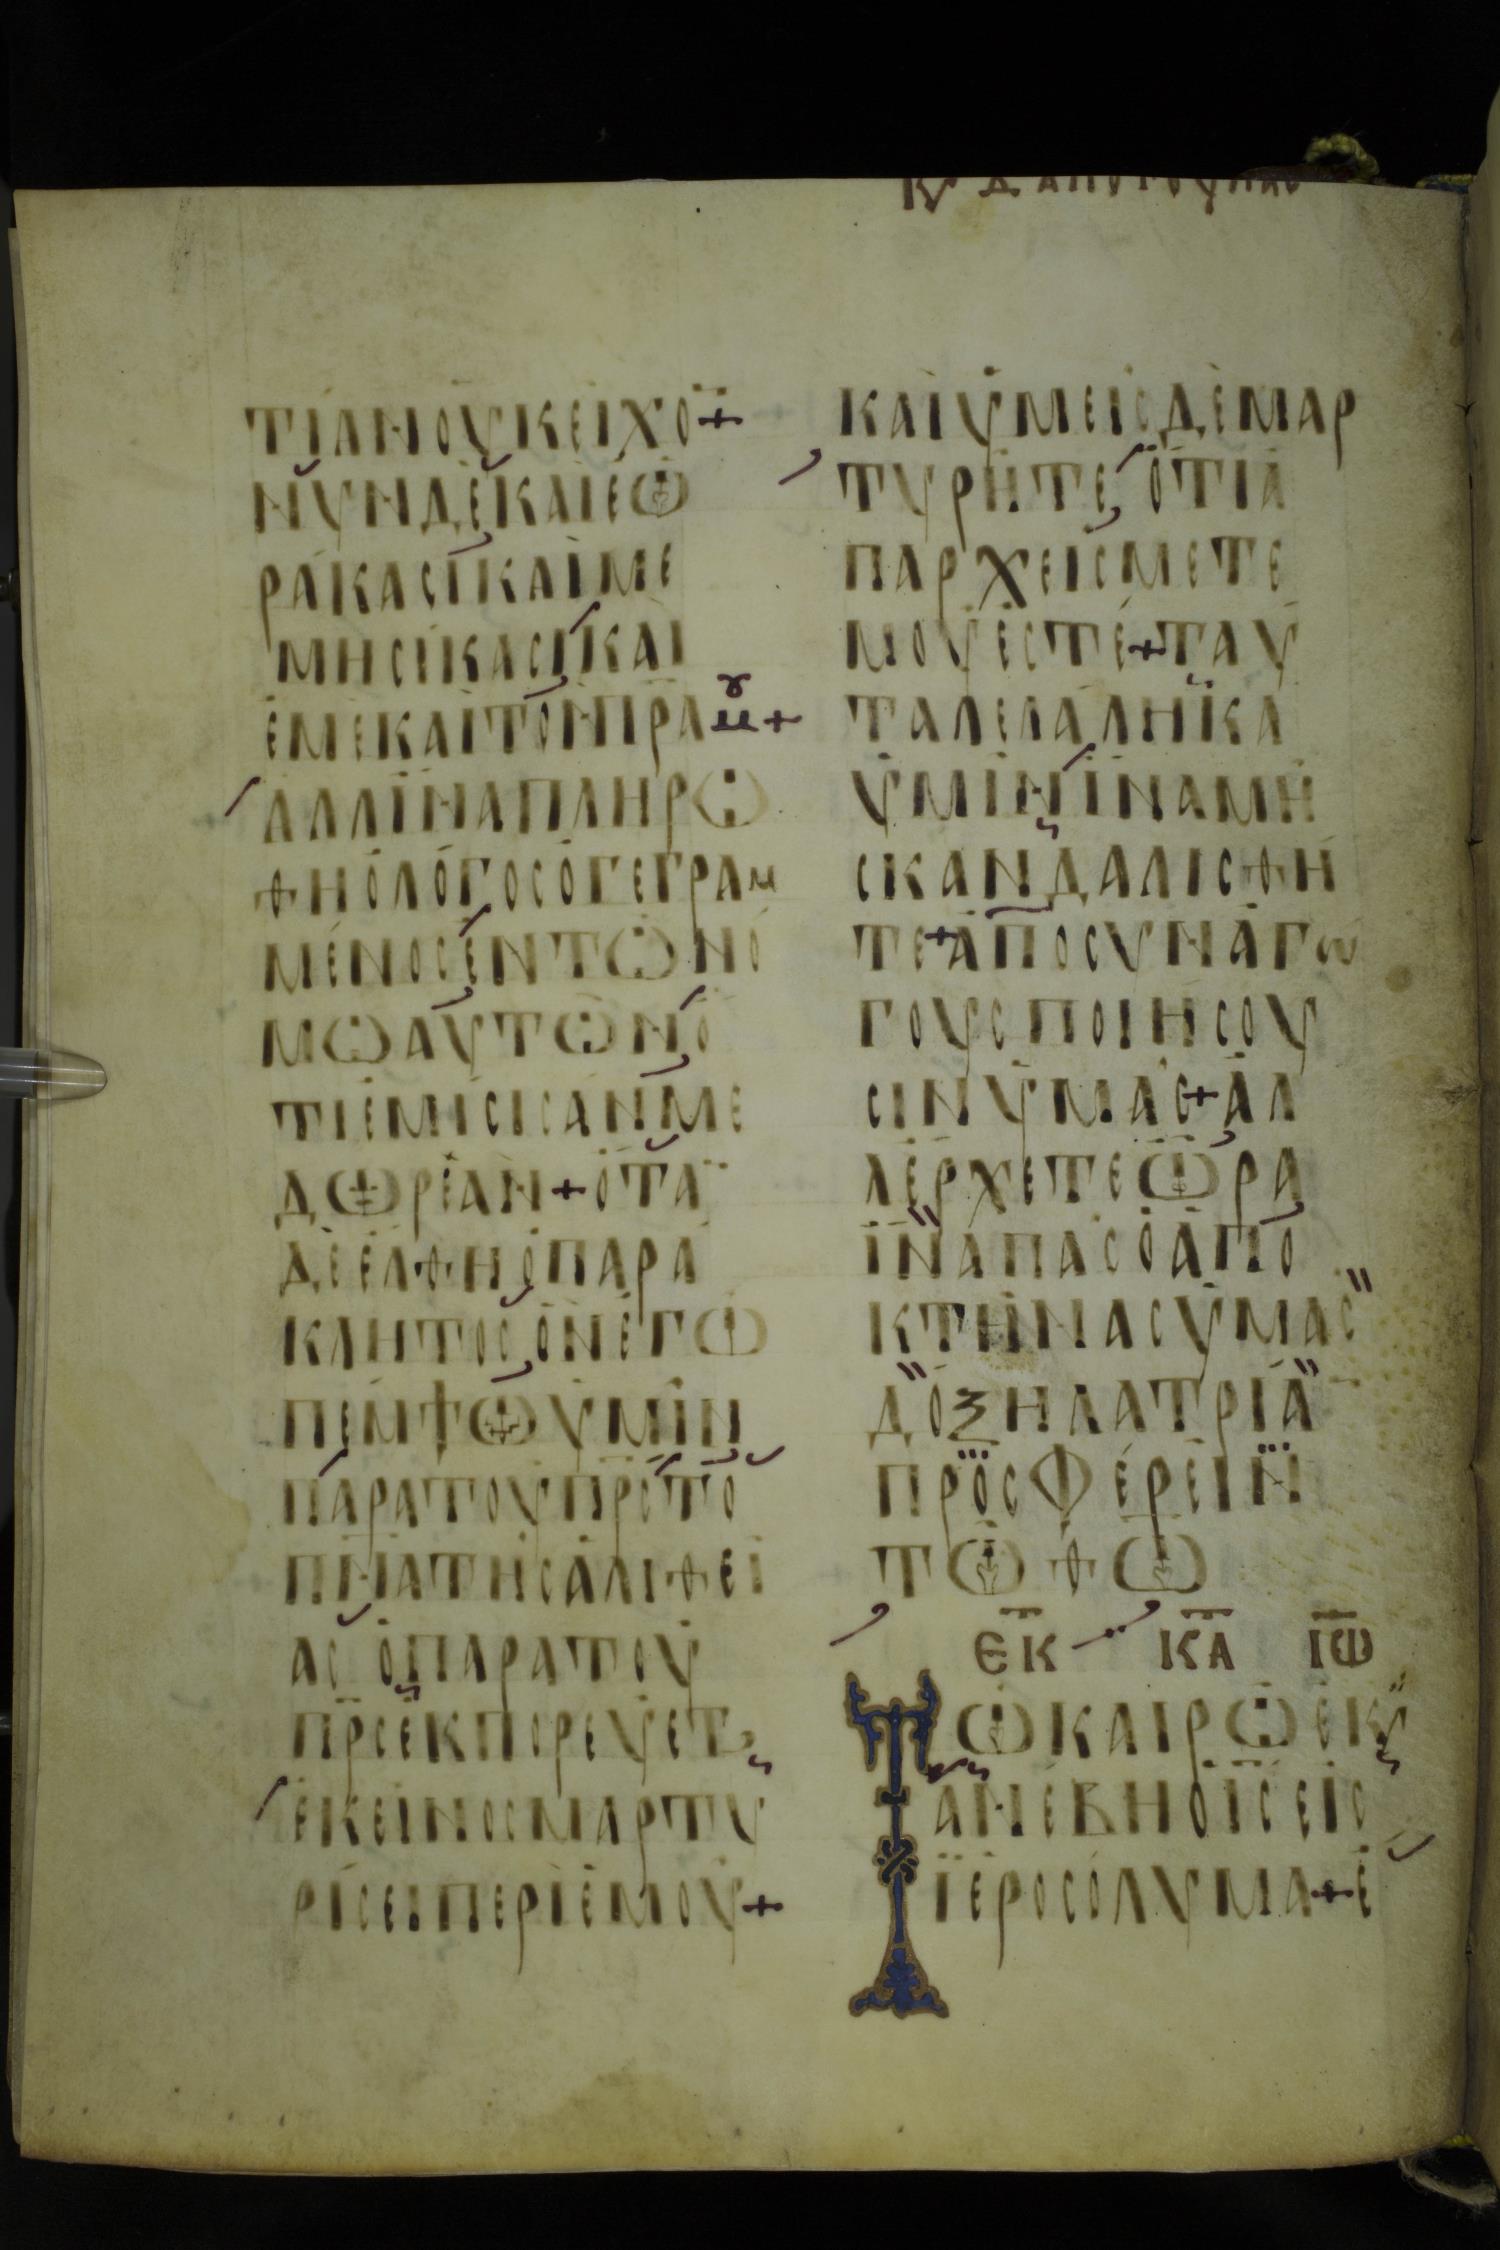 ΤΙΑΝΟΥΚΕΙΧΟ+
ΝΥΝΔΕΚΑΙΕΩ
ΡΑΚΑCΙΚΑΙΜΕ
ΜΗCΙΚΑCΙΚΑΙ
ΕΜΕΚΑΙΤΟΝΠΡΑΜȢ+
ΑΛΛΙΝΑΠΛΗΡΩ
ΘΗΟΛΟΓΟCΟΓΕΓΡΑΜ
ΜΕΝΟCΕΝΤΩΝΟ
ΜΩΑΥΤΩΝΟ
ΤΙΕΜΙCΙCΑΝΜΕ
ΔΩΡΙΑΝ+ΟΤΑ
ΔΕΕΛΘΗΟΠΑΡΑ
ΚΛΗΤΟCΟΝΕΓΩ
ΠΕΜΨΩΥΜΙΝ
ΠΑΡΑΤΟΥΠΡCΤΟ
ΠΝΑΤΗCΑΛΙΘΕΙ
ΑCΟΠΑΡΑΤΟΥ
ΠΡCΕΚΠΟΡΕΥΕΤ
ΕΚΕΙΝΟCΜΑΡΤΥ
ΡΙCΕΙΠΕΡΙΕΜΟΥ+
ΚΑΙΥΜΕΙCΔΕΜΑΡ
ΤΥΡΗΤΕΟΤΙΑ
ΠΑΡΧΕΙCΜΕΤΕ
ΜΟΥΕCΤΕ+ΤΑΥ
ΤΑΛΕΛΑΛΗΚΑ
ΥΜΙΝΙΝΑΜΗ
CΚΑΝΔΑΛΙCΘΗ
ΤΕ+ΑΠΟCΥΝΑΓΩ
ΓΟΥCΠΟΙΗCΟΥ
CΙΝΥΜΑC+ΑΛ
ΛΕΡΧΕΤΕΩΡΑ
ΙΝΑΠΑCΟΑΠΟ
ΚΤΗΝΑCΥΜΑC
ΔΟΞΗΛΑΤΡΙΑ
ΠΡΟCΦΕΡΕΙΝ
ΤΩΘΩ
ΕΚ ΚΑ ΙΩ
ΤΩΚΑΙΡΩΕΚΥ
ΑΝΕΒΗΟΙCΕΙC
ΙΕΡΟCΟΛΥΜΑ+Ε